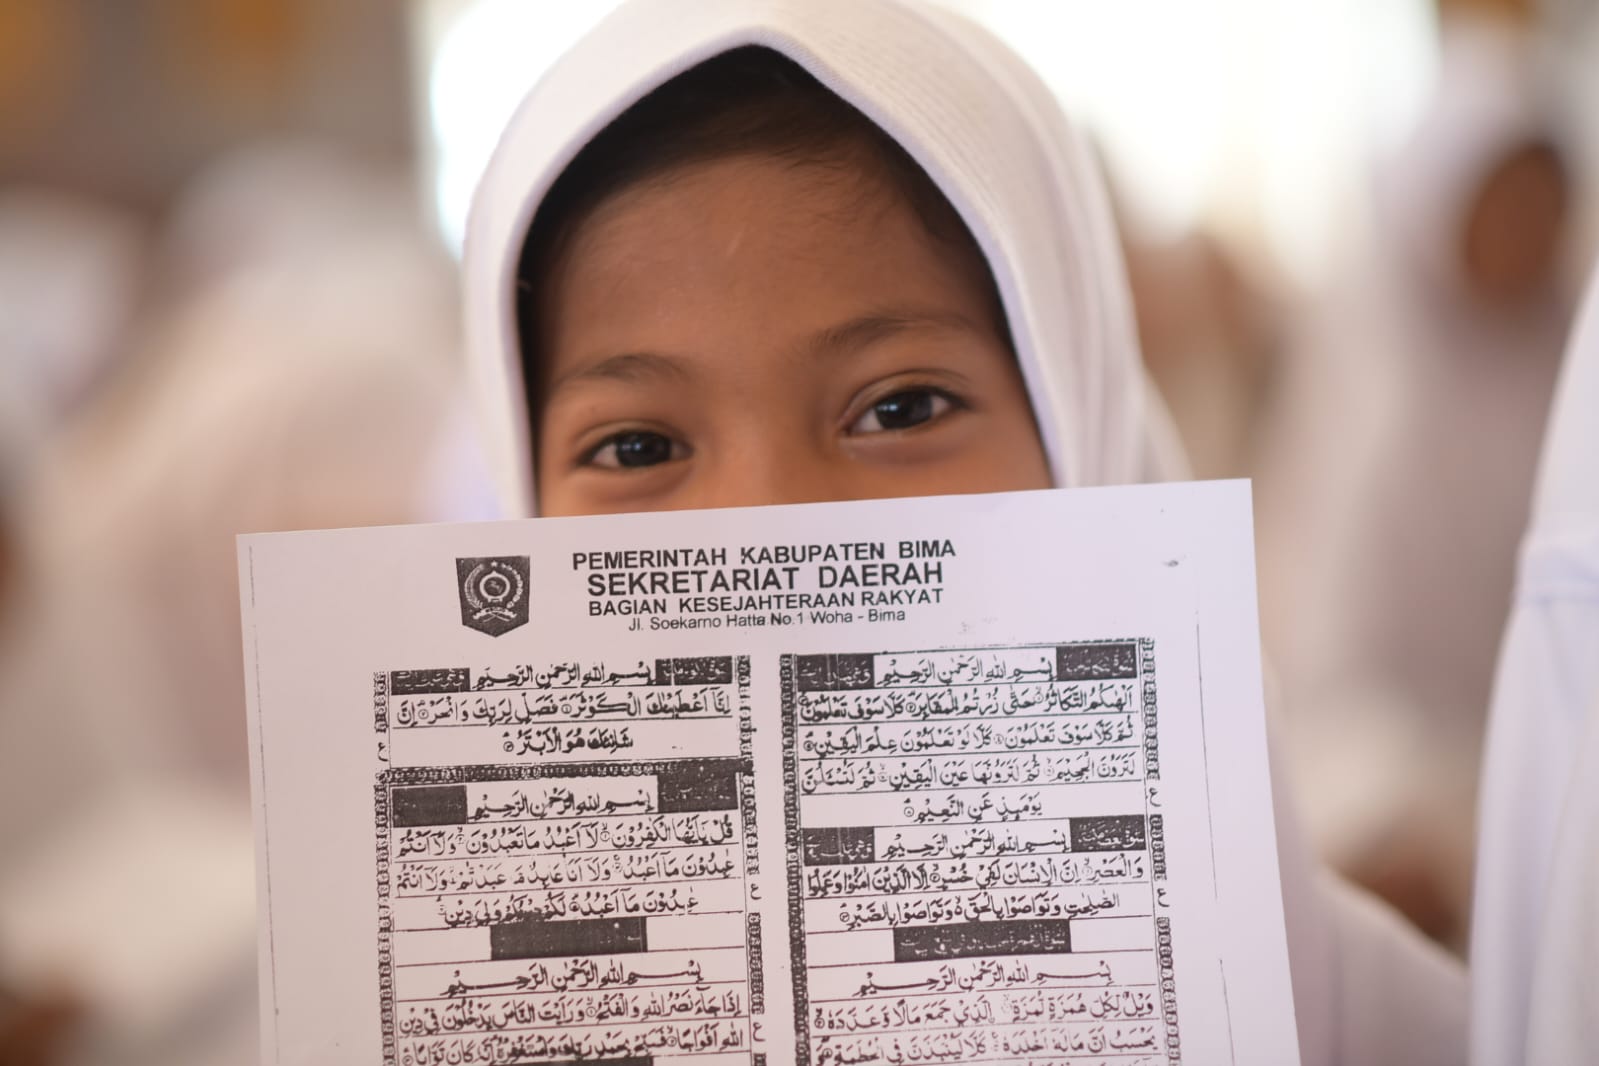 PEMERINTAH KABUPATEN BIMA
SEKRETARIAT DAERAH
BAGIAN KESEJAHTERAAN RAKYAT
Jl. Soekarno Hatta No.1 Woha - Bima
بِسْمِ اللهِ الرَّحْمٰنِ الرَّحِيْمِ
اِنَّآ اَعْطَيْنٰكَ الْكَوْثَرَ فَصَلِّ لِرَبِّكَ وَانْحَرْ اِنَّ
شَانِئَكَ هُوَ الْاَبْتَرُ
بِسْمِ اللهِ الرَّحْمٰنِ الرَّحِيْمِ
قُلْ يٰٓاَيُّهَا الْكٰفِرُوْنَ لَآ اَعْبُدُ مَا تَعْبُدُوْنَ وَلَآ اَنْتُمْ
عٰبِدُوْنَ مَآ اَعْبُدُ وَلَآ اَنَا۠ عَابِدٌ مَّا عَبَدْتُّمْ وَلَآ اَنْتُمْ
عٰبِدُوْنَ مَآ اَعْبُدُ لَكُمْ دِيْنُكُمْ وَلِيَ دِيْنِ
بِسْمِ اللهِ الرَّحْمٰنِ الرَّحِيْمِ
اِذَا جَآءَ نَصْرُ اللهِ وَالْفَتْحُ وَرَاَيْتَ النَّاسَ يَدْخُلُوْنَ فِيْ دِيْنِ
اللهِ اَفْوَاجًا فَسَبِّحْ بِحَمْدِ رَبِّكَ وَاسْتَغْفِرْهُ اِنَّهٗ كَانَ تَوَّابًا
بِسْمِ اللهِ الرَّحْمٰنِ الرَّحِيْمِ
اَلْهٰىكُمُ التَّكَاثُرُ حَتّٰى زُرْتُمُ الْمَقَابِرَ كَلَّا سَوْفَ تَعْلَمُوْنَ
ثُمَّ كَلَّا سَوْفَ تَعْلَمُوْنَ كَلَّا لَوْ تَعْلَمُوْنَ عِلْمَ الْيَقِيْنِ
لَتَرَوُنَّ الْجَحِيْمَ ثُمَّ لَتَرَوُنَّهَا عَيْنَ الْيَقِيْنِ ثُمَّ لَتُسْـَٔلُنَّ
يَوْمَئِذٍ عَنِ النَّعِيْمِ
بِسْمِ اللهِ الرَّحْمٰنِ الرَّحِيْمِ
وَالْعَصْرِ اِنَّ الْاِنْسَانَ لَفِيْ خُسْرٍ اِلَّا الَّذِيْنَ اٰمَنُوْا وَعَمِلُوا
الصّٰلِحٰتِ وَتَوَاصَوْا بِالْحَقِّ وَتَوَاصَوْا بِالصَّبْرِ
بِسْمِ اللهِ الرَّحْمٰنِ الرَّحِيْمِ
وَيْلٌ لِّكُلِّ هُمَزَةٍ لُّمَزَةٍ الَّذِيْ جَمَعَ مَالًا وَّعَدَّدَهٗ
يَحْسَبُ اَنَّ مَالَهٗٓ اَخْلَدَهٗ كَلَّا لَيُنْۢبَذَنَّ فِى الْحُطَمَةِ